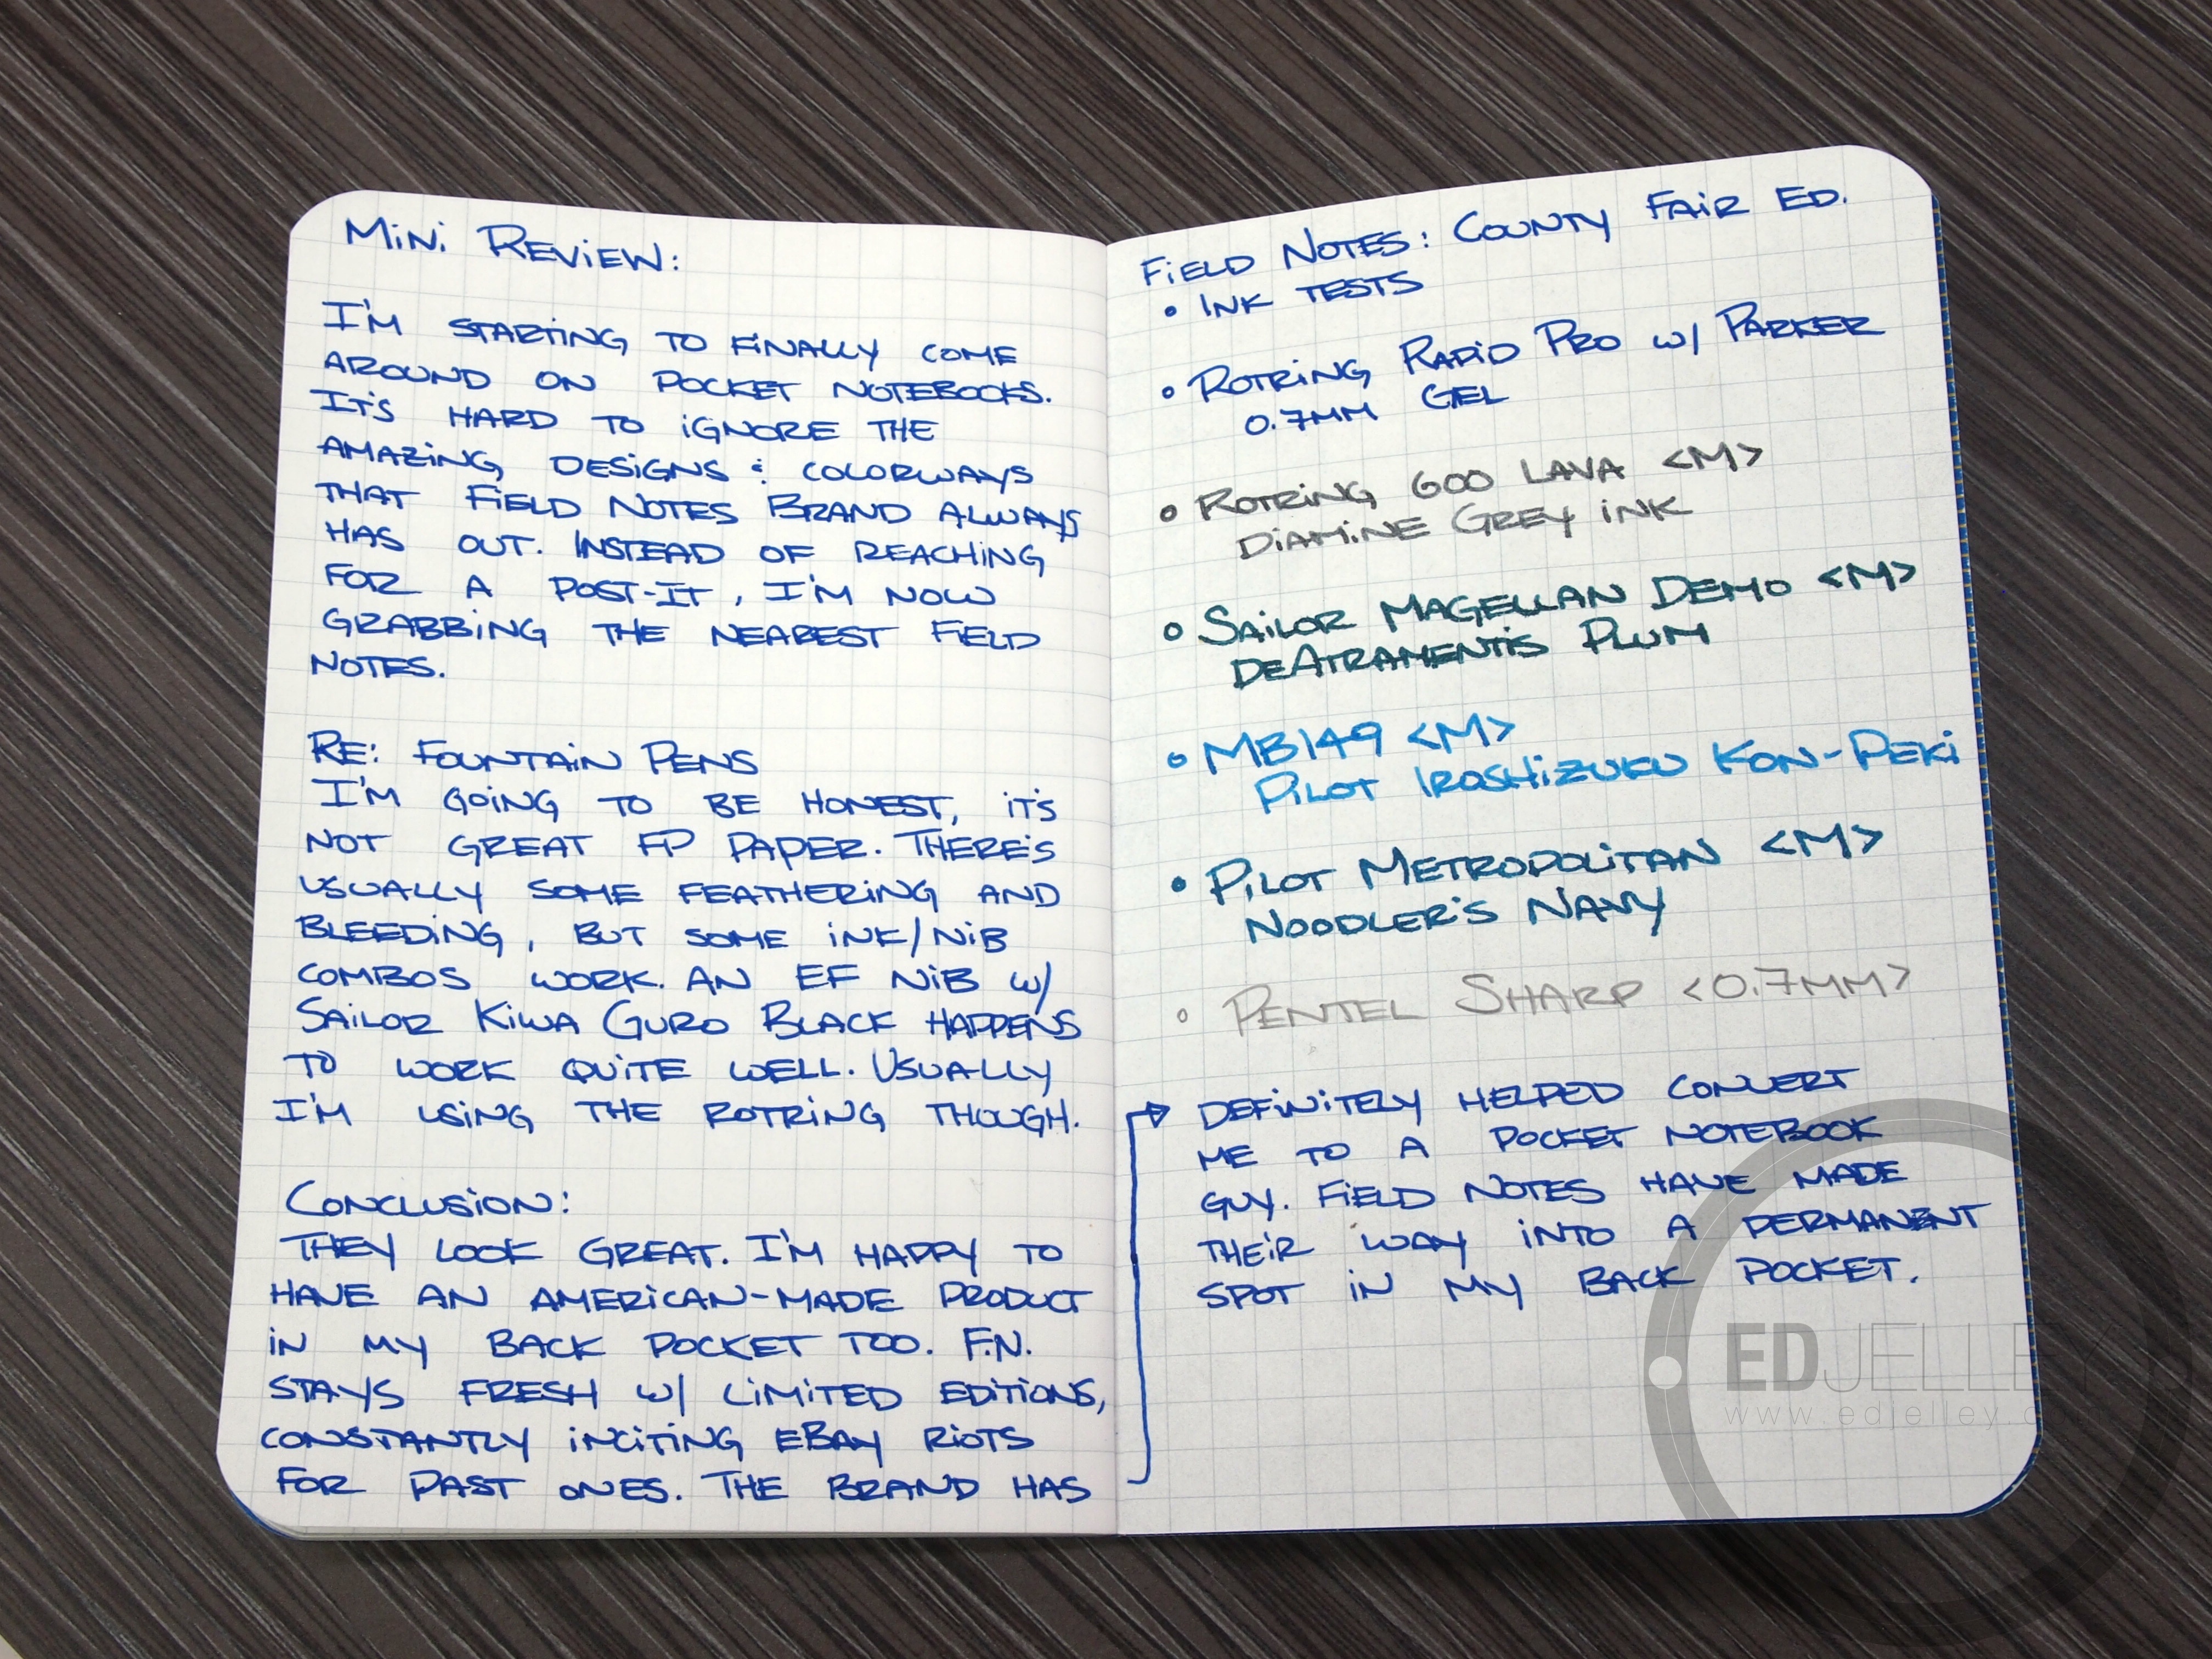 MINI REVIEW:
I'M STARTING TO FINALLY COME
AROUND ON POCKET NOTEBOOKS.
IT'S HARD TO IGNORE THE
AMAZING DESIGNS & COLORWAYS
THAT FIELD NOTES BRAND ALWAYS
HAS OUT. INSTEAD OF REACHING
FOR A POST-IT, I'M NOW
GRABBING THE NEAREST FIELD
NOTES.
RE: FOUNTAIN PENS
I'M GOING TO BE HONEST, IT'S
NOT GREAT FP PAPER. THERE'S
USUALLY SOME FEATHERING AND
BLEEDING, BUT SOME INK/NIB
COMBOS WORK. AN EF NIB W/
SAILOR KIWA GURO BLACK HAPPENS
TO WORK QUITE WELL. USUALLY
I'M USING THE ROTRING THOUGH.
CONCLUSION:
THEY LOOK GREAT. I'M HAPPY TO
HAVE AN AMERICAN-MADE PRODUCT
IN MY BACK POCKET TOO. F.N.
STAYS FRESH W/ LIMITED EDITIONS,
CONSTANTLY INCITING EBAY RIOTS
FOR PAST ONES. THE BRAND HAS
FIELD NOTES: COUNTY FAIR ED.
• INK TESTS
• ROTRING RAPID PRO W/ PARKER
0.7MM GEL
• ROTRING 600 LAVA <M>
DIAMINE GREY INK
• SAILOR MAGELLAN DEMO <M>
DEATRAMENTIS PLUM
• MB149 <M>
PILOT IROSHIZUKU KON-PEKI
• PILOT METROPOLITAN <M>
NOODLER'S NAVY
• PENTEL SHARP <0.7MM>
DEFINITELY HELPED CONVERT
ME TO A POCKET NOTEBOOK
GUY. FIELD NOTES HAVE MADE
THEIR WAY INTO A PERMANENT
SPOT IN MY BACK POCKET.
EDJELLEY
www.edjelley.com